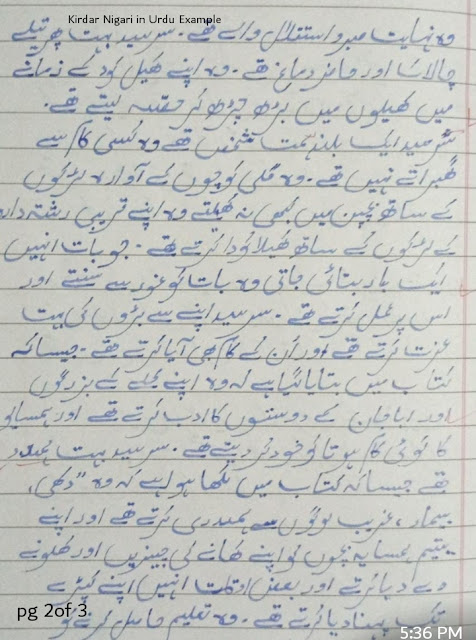 Kirdar Nigari in Urdu Example
وہ نہایت صبر و استقلال والے تھے۔ سرسید بہت پھرتیلے
چالاک اور حاضر دماغ تھے۔ وہ اپنے کھیل کود کے زمانے
میں کھیلوں میں بڑھ چڑھ کر حصہ لیتے تھے۔
سرسید ایک بلند ہمت شخص تھے وہ کسی کام سے
گھبراتے نہیں تھے۔ وہ گلی کوچوں کے آوارہ لڑکوں
کے ساتھ بچپن میں کبھی نہ کھیلتے وہ اپنے قریبی رشتہ دار
کے لڑکوں کے ساتھ کھیلا کودا کرتے تھے۔ جو بات انہیں
ایک بار بتائی جاتی وہ بات کو غور سے سنتے اور
اس پر عمل کرتے تھے۔ سرسید اپنے سے بڑوں کی بہت
عزت کرتے تھے اور ان کے کام بھی آیا کرتے تھے۔ جیسا کہ
کتاب میں بتایا گیا ہے کہ وہ اپنے محلے کے بزرگوں
اور ابا جان کے دوستوں کا ادب کرتے تھے اور ہمسایو
کا کوئی کام ہوتا تو خود کر دیتے تھے۔ سرسید بہت ہمدرد
تھے جیسا کہ کتاب میں لکھا ہوا ہے کہ وہ "دکھی،
بیمار، غریب لوگوں سے ہمدردی کرتے تھے اور اپنے
یتیم ہمسایہ بچوں کو اپنے کھانے کی چیزیں اور کھلونے
دے دیا کرتے اور بعض اوقات انہیں اپنے کپڑے
پہنا دیا کرتے تھے۔ وہ تعلیم حاصل کرنے کو
pg 2of 3
5:36 PM